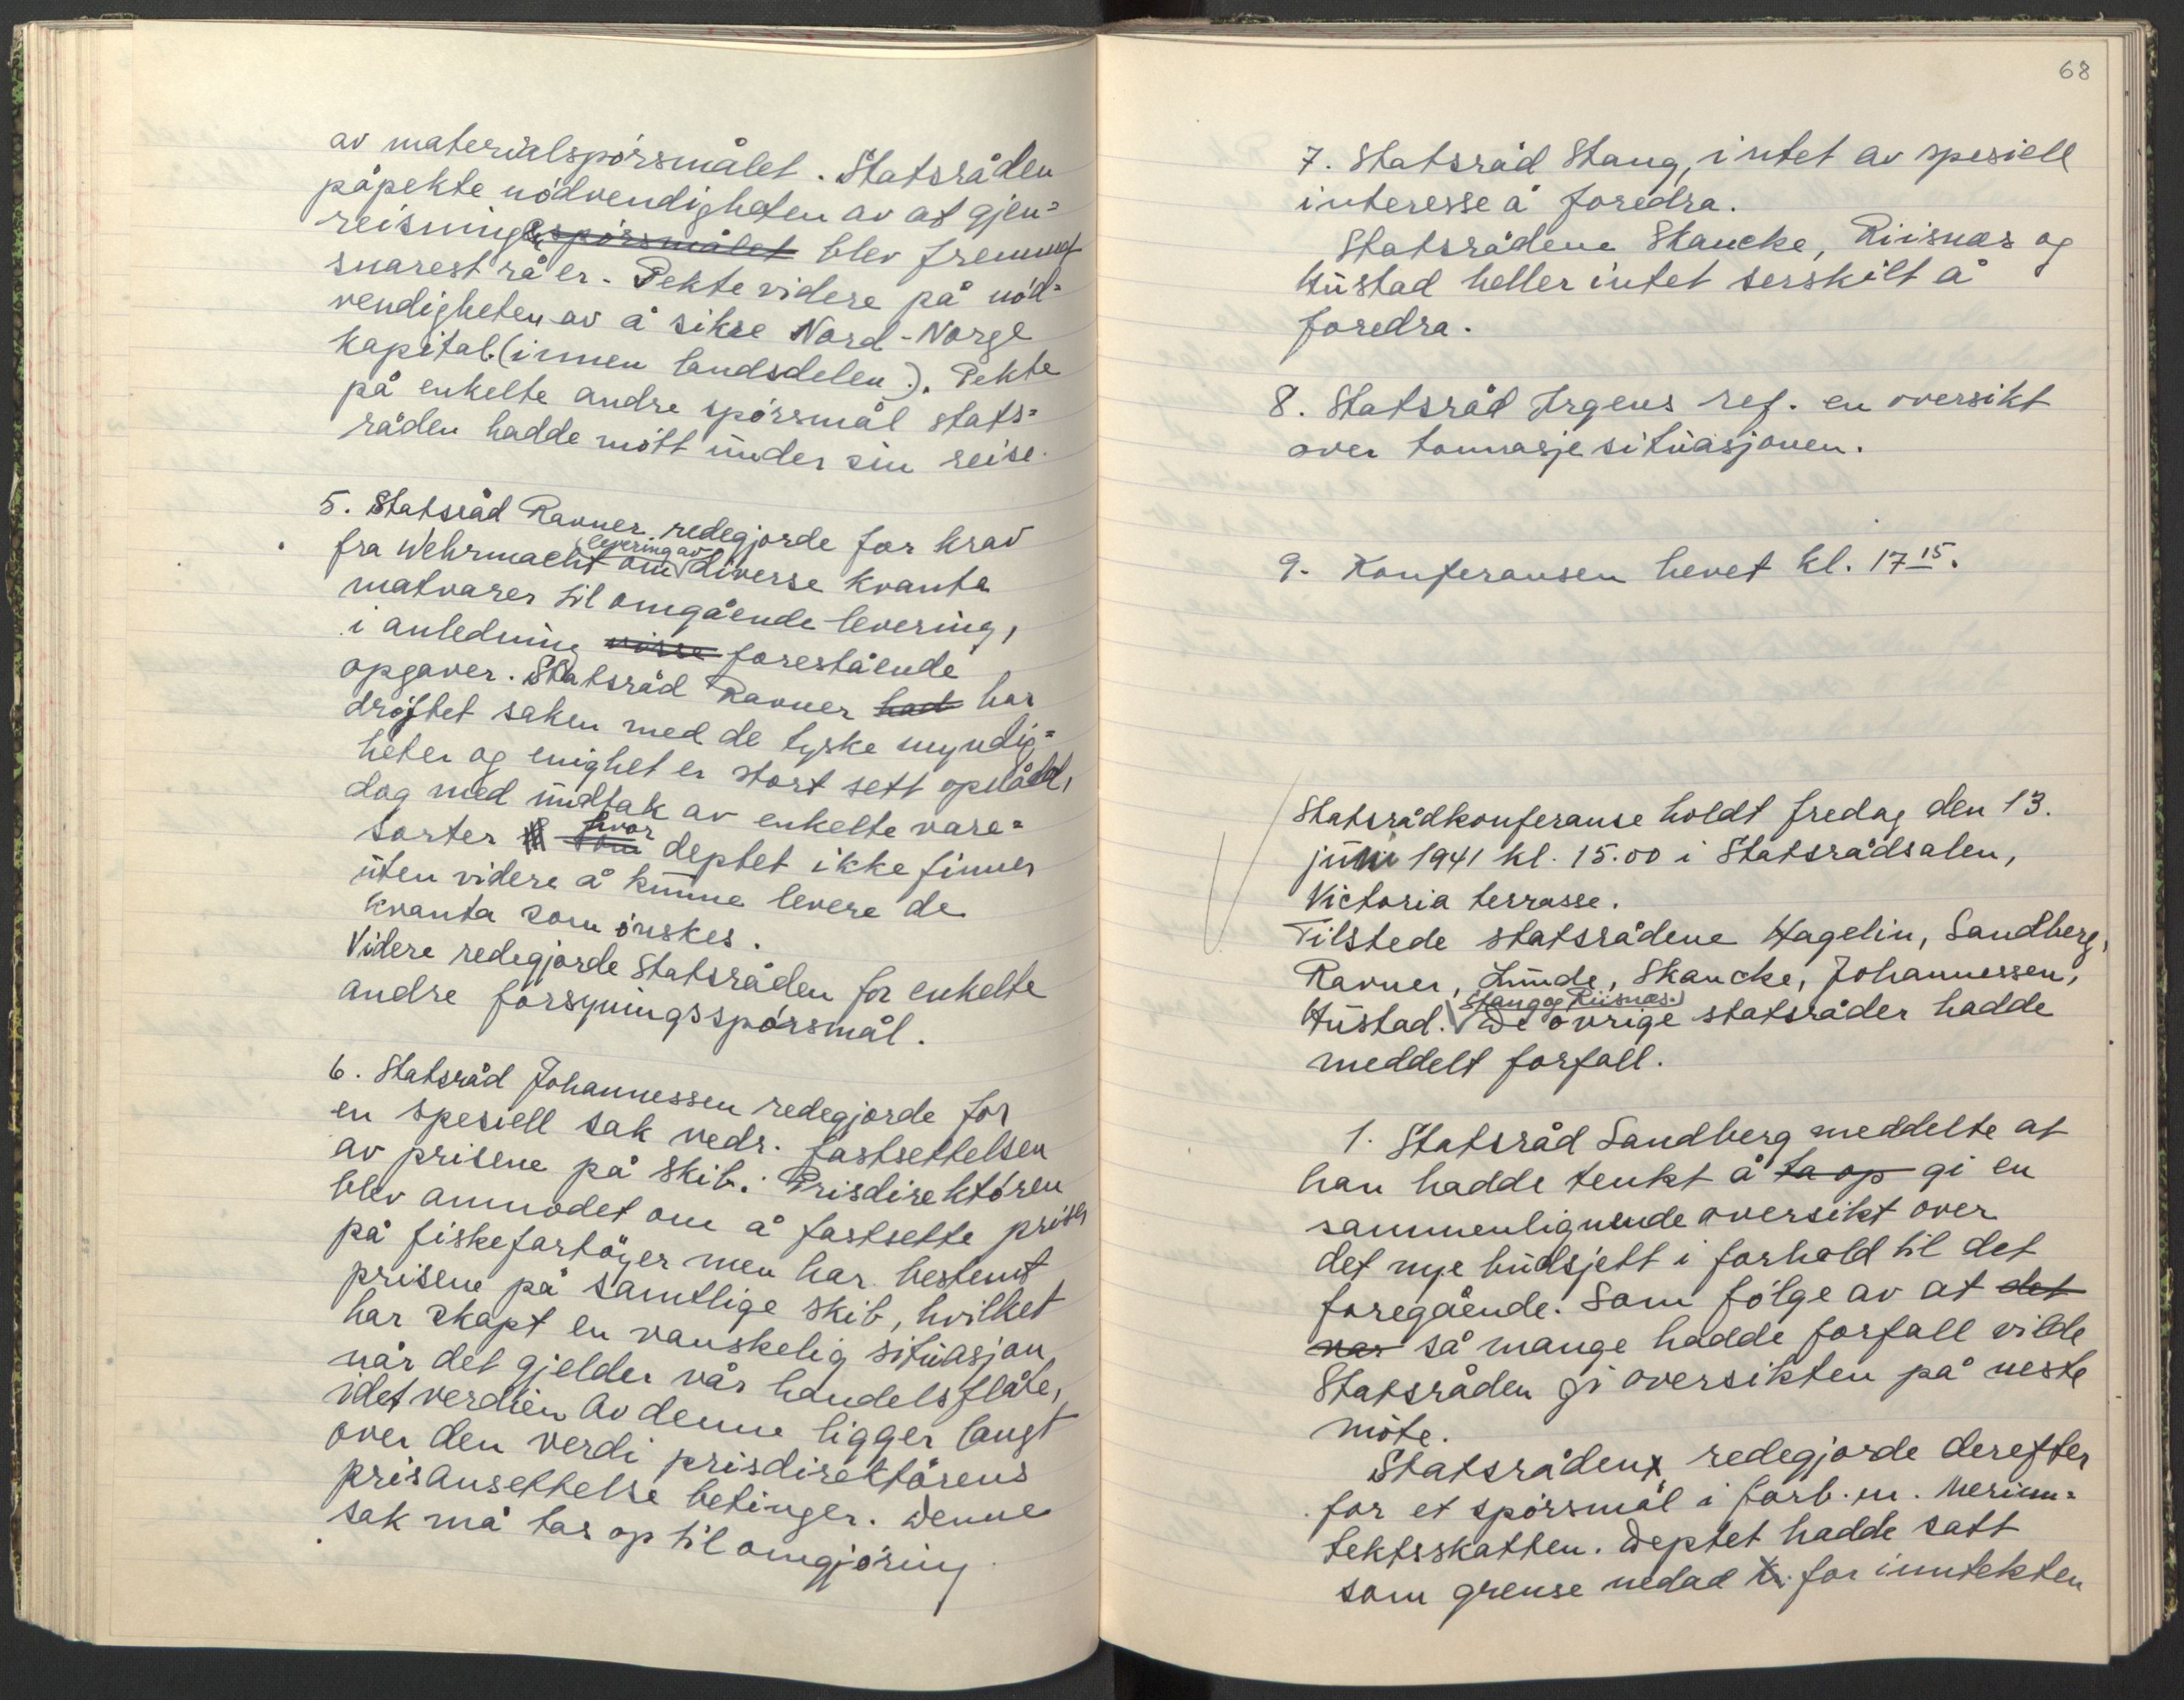 av materialspörsmålet. Statsråden
påpekte nödvendigheten av at gjen=
reisningsspörsmålet blev fremmet
snarest råer. Pekte videre på nöd=
vendigheten av å sikre Nord-Norge
kapital (innen landsdelen). Pekte
på enkelte andre spörsmål stats=
råden hadde mött under sin reise.
5. Statsråd Ravner redegjorde for krav
levering av
fra Wehrmacht om diverse kvanta
matvarer til omgående levering,
i anledning visse forestående
opgaver. Statsråd Ravner had har
dröftet saken med de tyske myndig=
heter og enighet er stort sett opnådd,
dog med undtak av enkelte vare=
hvor
sorter som deptet ikke finner
uten videre å kunne levere de
kvanta som önskes.
Videre redegjorde Statsråden for enkelte
andre forsyningsspörsmål.
6. Statsråd Johannessen redegjorde for
en spesiell sak vedr. fastsettelsen
av prisene på skib. Prisdirektören
blev anmodet om å fastsette priser
på fiskefartöyer men har bestemt
prisene på samtlige skib, hvilket
har skapt en vanskelig situasjon
når det gjelder vår handelsflåte,
idet verdien av denne ligger langt
over den verdi prisdirektörens
prisansettelse betinger. Denne
sak må tas op til omgjöring
68
7. Statsråd Stang, intet av spesiell
interesse å foredra.
Statsrådene Skancke, Riisnæs og
Hustad heller intet serskilt å
foredra.
8. Statsråd Irgens ref. en oversikt
over tonnasjesituasjonen.
9. Konferansen hevet kl. 17 15.
Statsrådkonferanse holdt fredag den 13.
juni 1941 kl. 15.00 i Statsrådsalen,
Victoria terrasse.
Tilstede statsrådene Hagelin, Sandberg,
Ravner, Lunde, Skancke, Johannessen,
Stang og Riisnæs.
Hustad. De övrige statsråder hadde
meddelt forfall.
1. Statsråd Sandberg meddelte at
han hadde tenkt å ta op gi en
sammenlignende oversikt over
det nye budsjett i forhold til det
foregående. Som fölge av at det
var så mange hadde forfall vilde
Statsråden gi oversikten på neste
möte.
Statsråden redegjorde derefter
for et spörsmål i forb. m. merinn=
tektsskatten. Deptet hadde satt
som grense nedad for inntekten